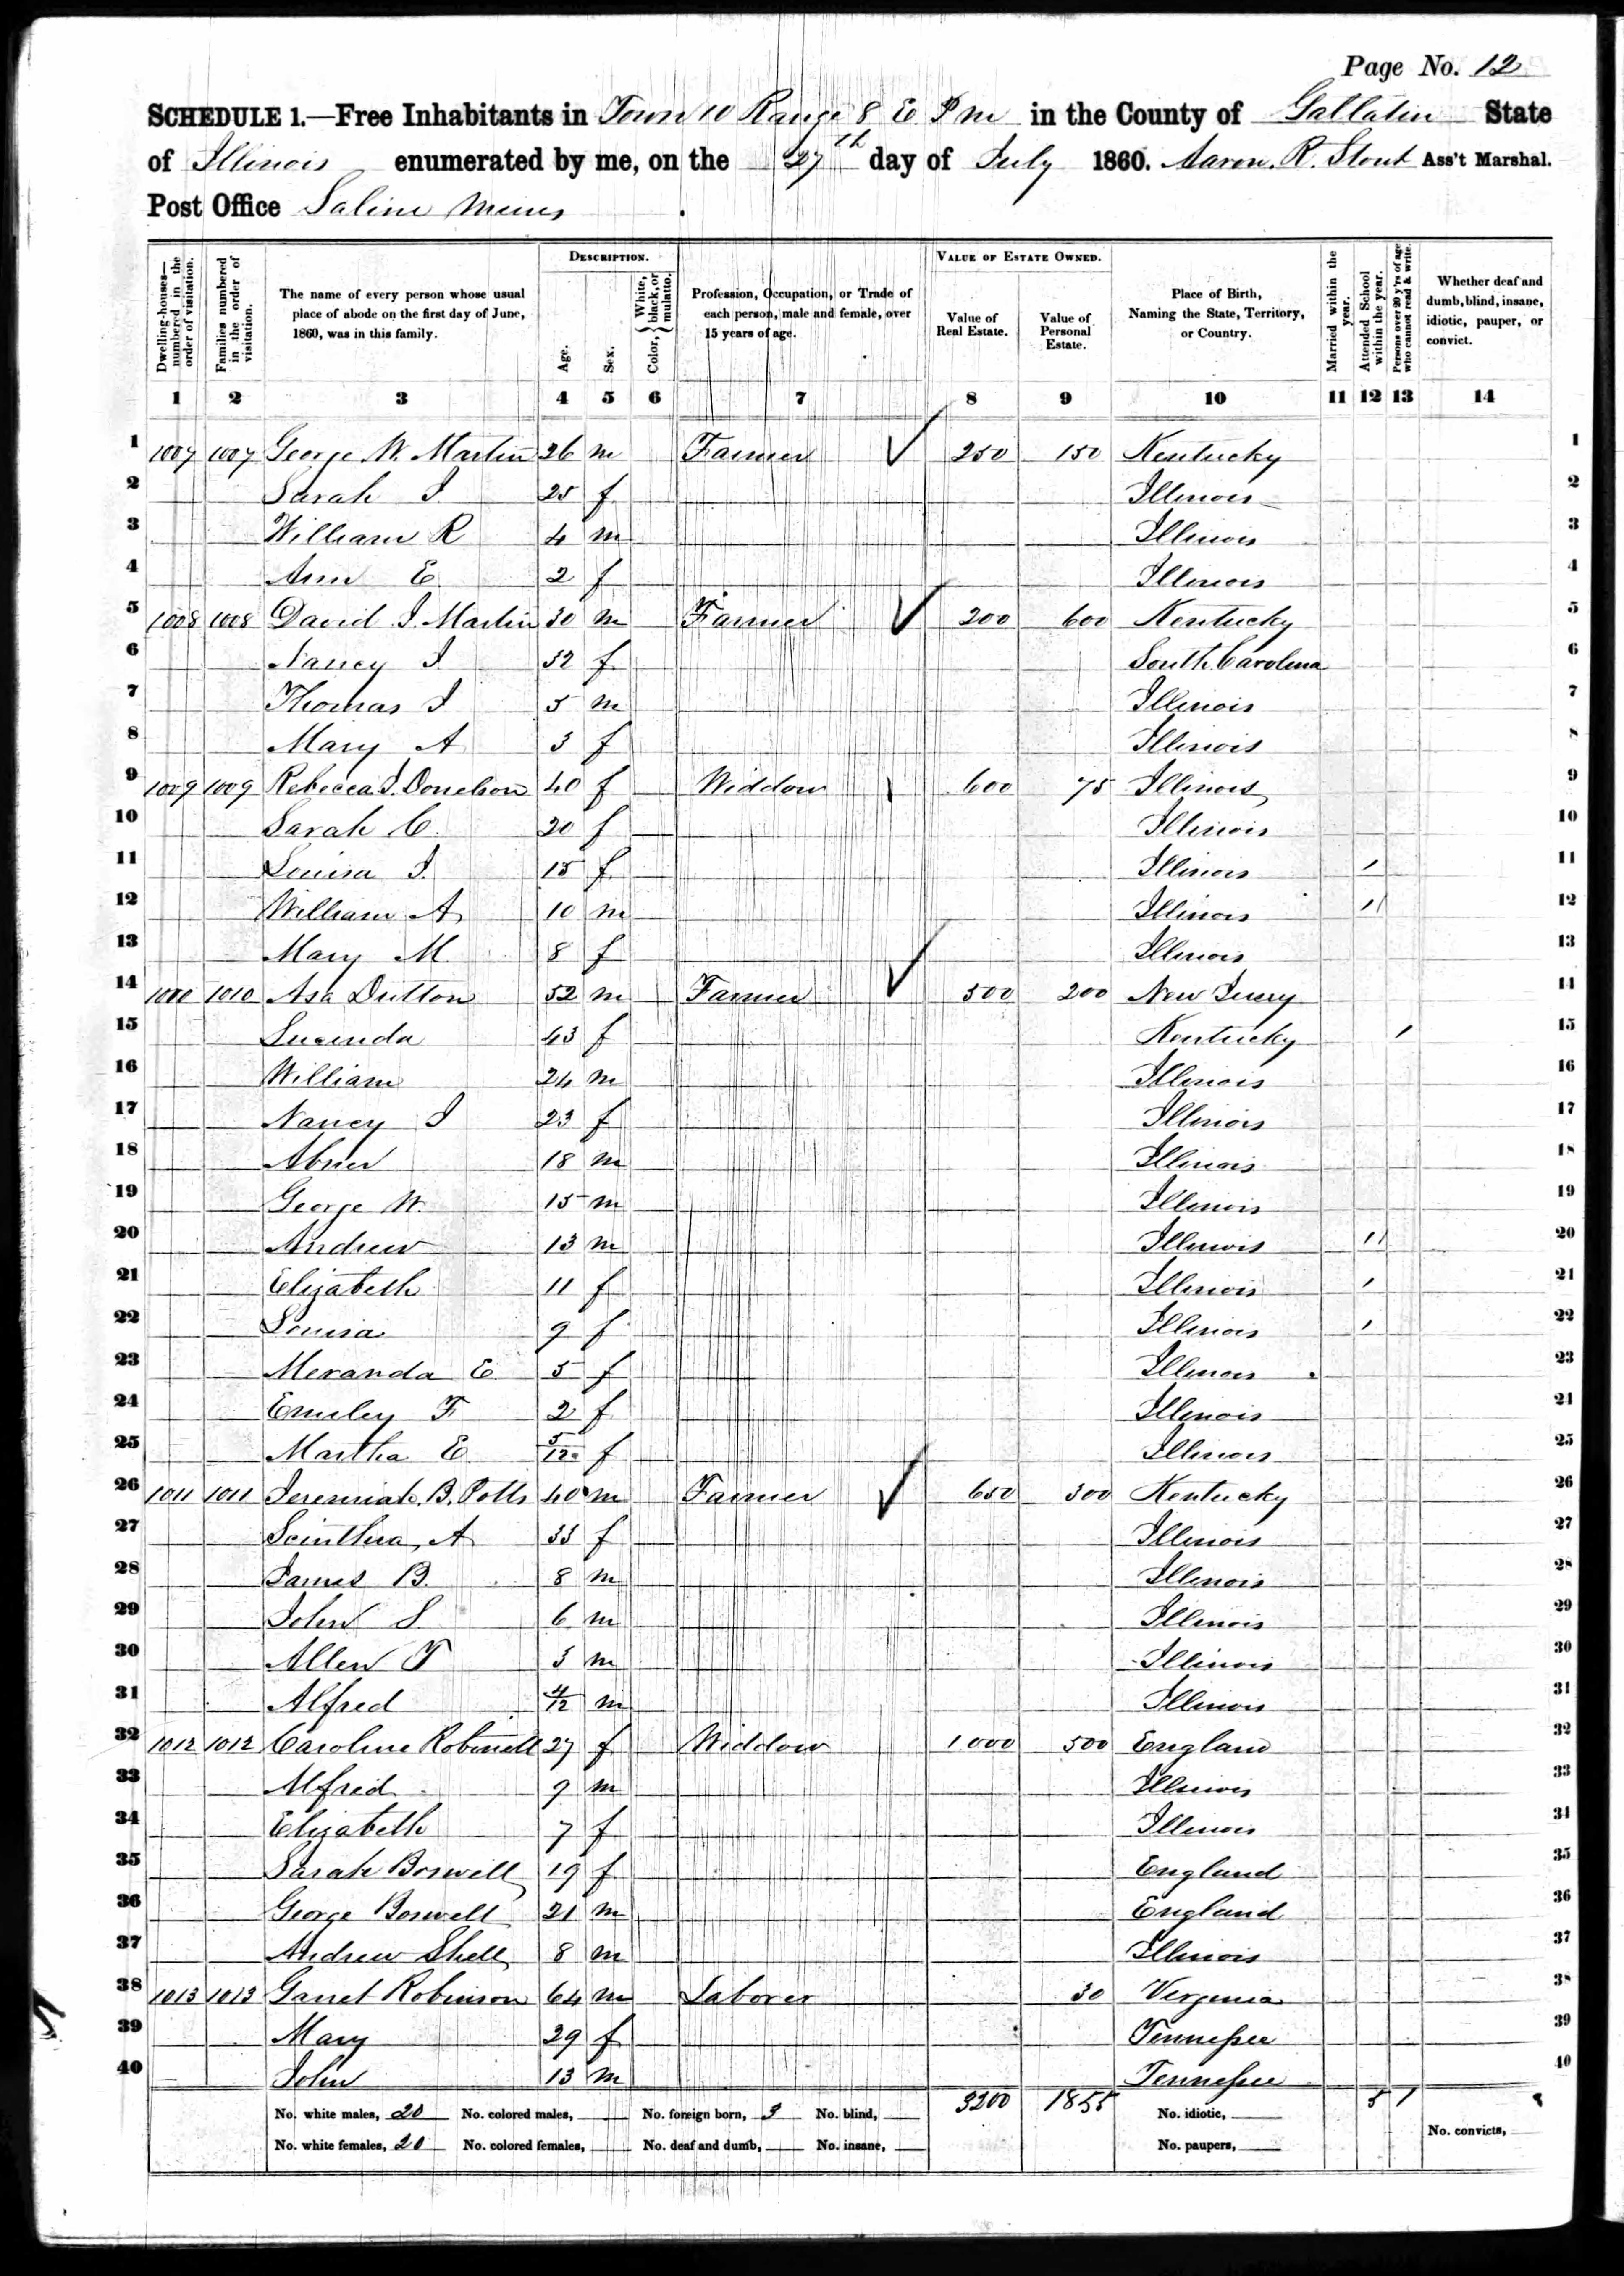 Page No. 12
SCHEDULE 1.—Free Inhabitants in Town 10 Range 8 E. P m in the County of Gallatin State
of Illinois enumerated by me, on the 27th day of July 1860. Aaron. R. Stout Ass't Marshal.
Post Office Saline Mines
Dwelling-houses—numbered in the order of visitation.
Families numbered in the order of visitation.
The name of every person whose usual place of abode on the first day of June, 1860, was in this family.
DESCRIPTION.
Age.
Sex.
Color, { White, black, or mulatto.
Profession, Occupation, or Trade of each person, male and female, over 15 years of age.
VALUE OF ESTATE OWNED.
Value of Real Estate.
Value of Personal Estate.
Place of Birth, Naming the State, Territory, or Country.
Married within the year.
Attended School within the year.
Persons over 20 y'rs of age who cannot read & write.
Whether deaf and dumb, blind, insane, idiotic, pauper, or convict.
1 2 3 4 5 6 7 8 9 10 11 12 13 14
1 1007 1007 George W. Martin 26 m Farmer ✓ 250 150 Kentucky 1
2 Sarah J 25 f Illinois 2
3 William R 4 m Illinois 3
4 Ann E 2 f Illinois 4
5 1008 1008 David J. Martin 30 m Farmer ✓ 200 600 Kentucky 5
6 Nancy J 32 f South Carolina 6
7 Thomas J 5 m Illinois 7
8 Mary A 3 f Illinois 8
9 1009 1009 Rebecca J. Donelson 40 f Widdow 600 75 Illinois 9
10 Sarah C. 20 f Illinois 10
11 Louisa J. 15 f Illinois / 11
12 William A 10 m Illinois // 12
13 Mary M 8 f Illinois 13
14 1010 1010 Asa Dutton 52 m Farmer ✓ 500 200 New Jersy 14
15 Lucinda 43 f Kentucky / 15
16 William 24 m Illinois 16
17 Nancy J 23 f Illinois 17
18 Abner 18 m Illinois 18
19 George W. 15 m Illinois 19
20 Andrew 13 m Illinois // 20
21 Elizabeth 11 f Illinois / 21
22 Louisa 9 f Illinois / 22
23 Meranda E 5 f Illinois 23
24 Emeley F 2 f Illinois 24
25 Martha E 5/12 f Illinois 25
26 1011 1011 Jeremiah B. Potts 40 m Farmer ✓ 650 300 Kentucky 26
27 Scinthia A 33 f Illinois 27
28 James B. 8 m Illinois 28
29 John S 6 m Illinois 29
30 Allen T 3 m Illinois 30
31 Alfred 4/12 m Illinois 31
32 1012 1012 Caroline Robinell 27 f Widdow 1000 500 England 32
33 Alfred 9 m Illinois 33
34 Elizabeth 7 f Illinois 34
35 Sarah Boswell 19 f England 35
36 George Boswell 21 m England 36
37 Andrew Shell 8 m Illinois 37
38 1013 1013 Garret Robinson 64 m Laborer 30 Virgenia 38
39 Mary 29 f Tennessee 39
40 John 13 m Tennessee 40
No. white males, 20 No. colored males, No. foreign born, 3 No. blind, 3200 1855 No. idiotic, 5 1
No. white females, 20 No. colored females, No. deaf and dumb, No. insane, No. paupers, No. convicts,